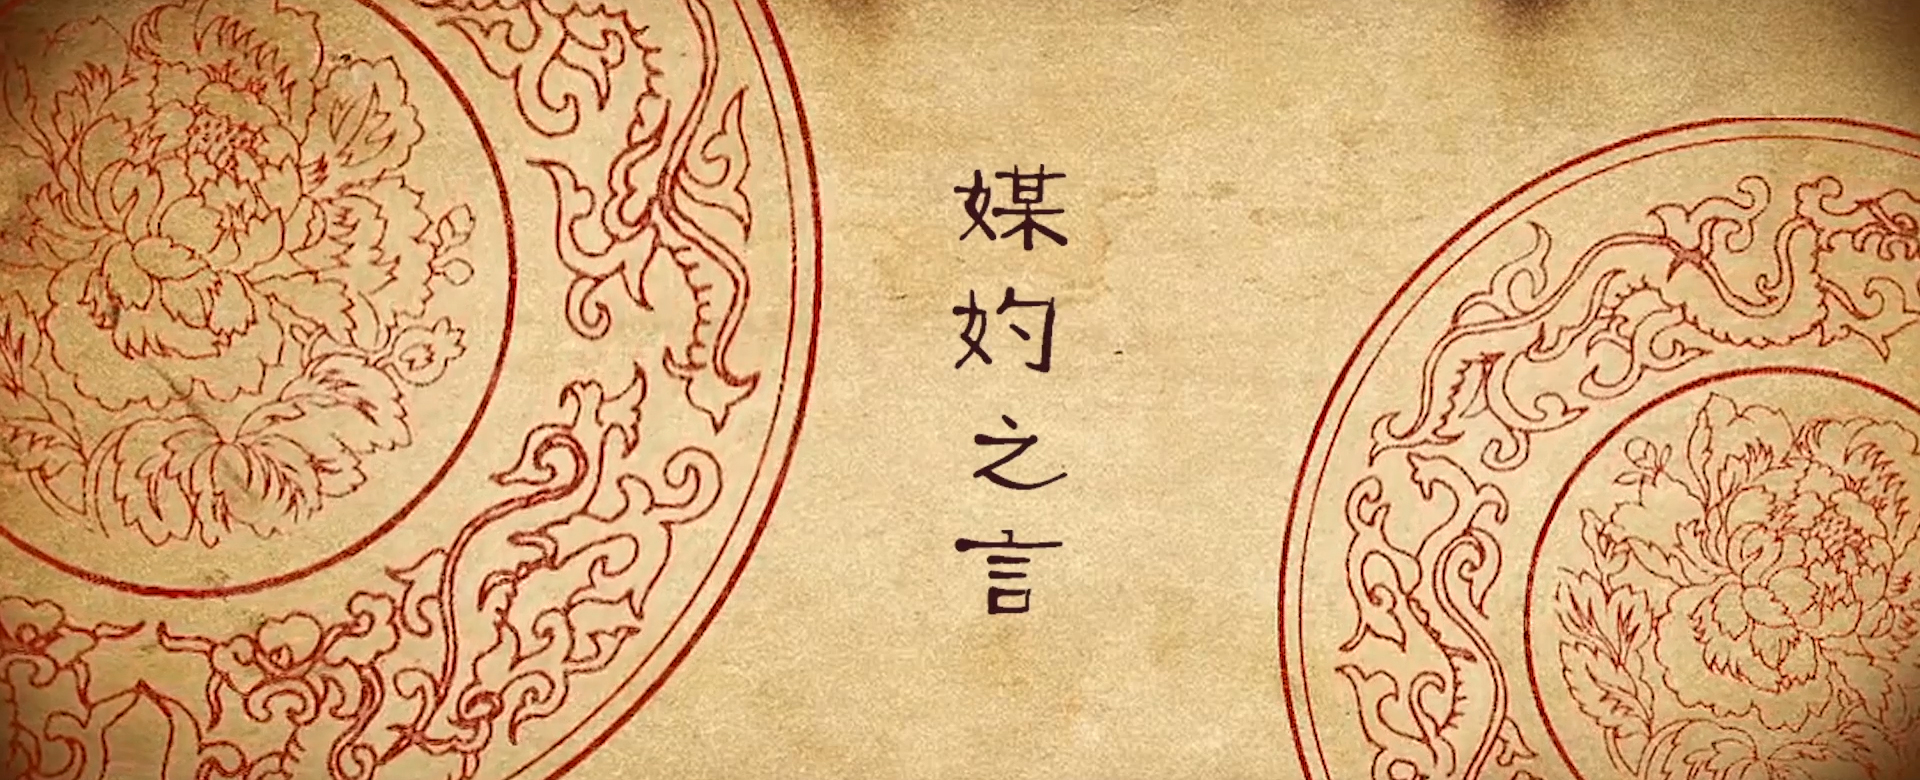 媒妁之言